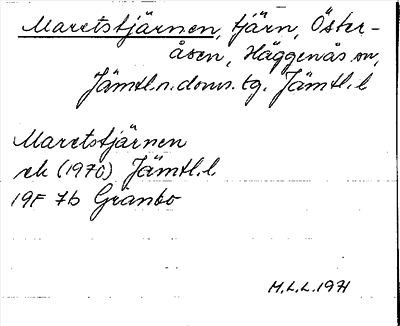 Maretstjärnen, tjärn, Öster-
åsen, Häggenås sn,
Jämtl.n.doms.tg. Jämtl.l
Maretstjärnen
ek (1970) Jämtl.l.
19F 7b Granbo
M.L.L. 1971